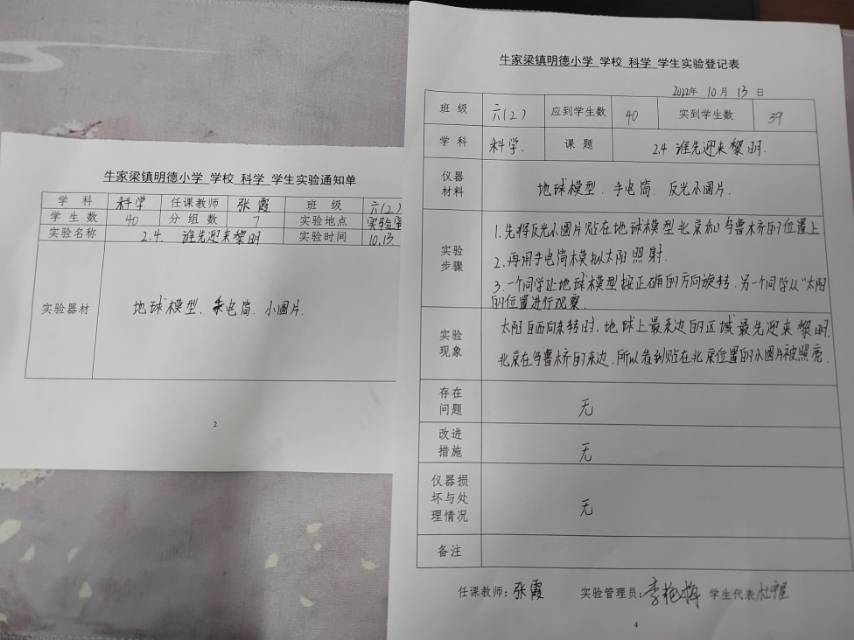 牛家梁镇明德小学 学校 科学 学生实验通知单
学 科 科学 任课教师 张霞 班 级 六(2)
学 生 数 40 分 组 数 7 实验地点 实验室
实验名称 2.4. 谁先迎来黎明 实验时间 10.13
实验器材 地球模型、手电筒、小图片.
2
牛家梁镇明德小学 学校 科学 学生实验登记表
2022年 10 月 13 日
班 级 六(2) 应到学生数 40 实到学生数 39
学 科 科学. 课 题 2.4 谁先迎来黎明.
仪器
材料 地球模型、手电筒、反光小图片.
实验
步骤
1.先将反光小图片贴在地球模型北京和乌鲁木齐的位置上
2.再用手电筒来模拟太阳照射.
3.一个同学让地球模型按正确的方向旋转,另一个同学从“太阳
的位置进行观察.
实验
现象
太阳自西向东转时,地球上最东边的区域最先迎来黎明.
北京在乌鲁木齐的东边,所以看到贴在北京位置的小图片被照亮.
存在
问题 无
改进
措施 无
仪器损
坏与处
理情况 无
备注
任课教师:张霞 实验管理员:李艳梅 学生代表
4